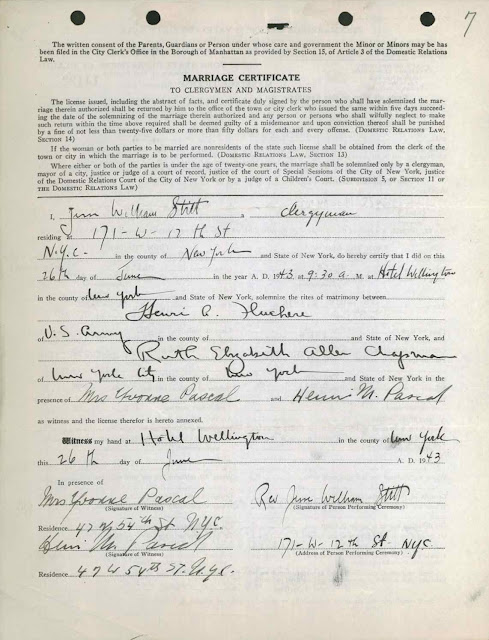 7
The written consent of the Parents, Guardians or Person under whose care and government the Minor or Minors may be has
been filed in the City Clerk's Office in the Borough of Manhattan as provided by Section 15, of Article 3 of the Domestic Relations
Law.
MARRIAGE CERTIFICATE
TO CLERGYMEN AND MAGISTRATES
The license issued, including the abstract of facts, and certificate duly signed by the person who shall have solemnized the mar-
riage therein authorized shall be returned by him to the office of the town or city clerk who issued the same within five days succeed-
ing the date of the solemnizing of the marriage therein authorized and any person or persons who shall wilfully neglect to make
such return within the time above required shall be deemed guilty of a misdemeanor and upon conviction thereof shall be punished
by a fine of not less than twenty-five dollars or more than fifty dollars for each and every offense. (DOMESTIC RELATIONS LAW,
SECTION 14)
If the woman or both parties to be married are nonresidents of the state such license shall be obtained from the clerk of the
town or city in which the marriage is to be performed. (DOMESTIC RELATIONS LAW, SECTION 13)
Where either or both of the parties is under the age of twenty-one years, the marriage shall be solemnized only by a clergyman,
mayor of a city, justice or judge of a court of record, justice of the court of Special Sessions of the City of New York, justice
of the Domestic Relations Court of the City of New York or by a judge of a Children's Court. (SUBDIVISION 5, OR SECTION 11 OF
THE DOMESTIC RELATIONS LAW)
I, Jim William Stitt a Clergyman
residing at 171-W-12 th St
N.Y.C. in the county of New York and State of New York, do hereby certify that I did on this
26th day of June in the year A. D. 1943 at 9:30 a. M. at Hotel Wellington
in the county of New York and State of New York, solemnize the rites of matrimony between
Henri A. Fluchere
of U.S. Army in the county of and State of New York, and
Ruth Elizabeth Allen Chapman
of New York City in the county of New York and State of New York in the
presence of Mrs Yvonne Pascal and Henri M. Pascal
as witness and the license therefor is hereto annexed.
Witness my hand at Hotel Wellington in the county of New York
this 26 th day of June A. D. 1943
In presence of
Mrs Yvonne Pascal Rev Jim William Stitt
(Signature of Witness) (Signature of Person Performing Ceremony)
Residence 47 W 54th St NYC
Henri M. Pascal 171-W-12th St. NYC
(Signature of Witness) (Address of Person Performing Ceremony)
Residence 47 W 54th St. N.Y.C.